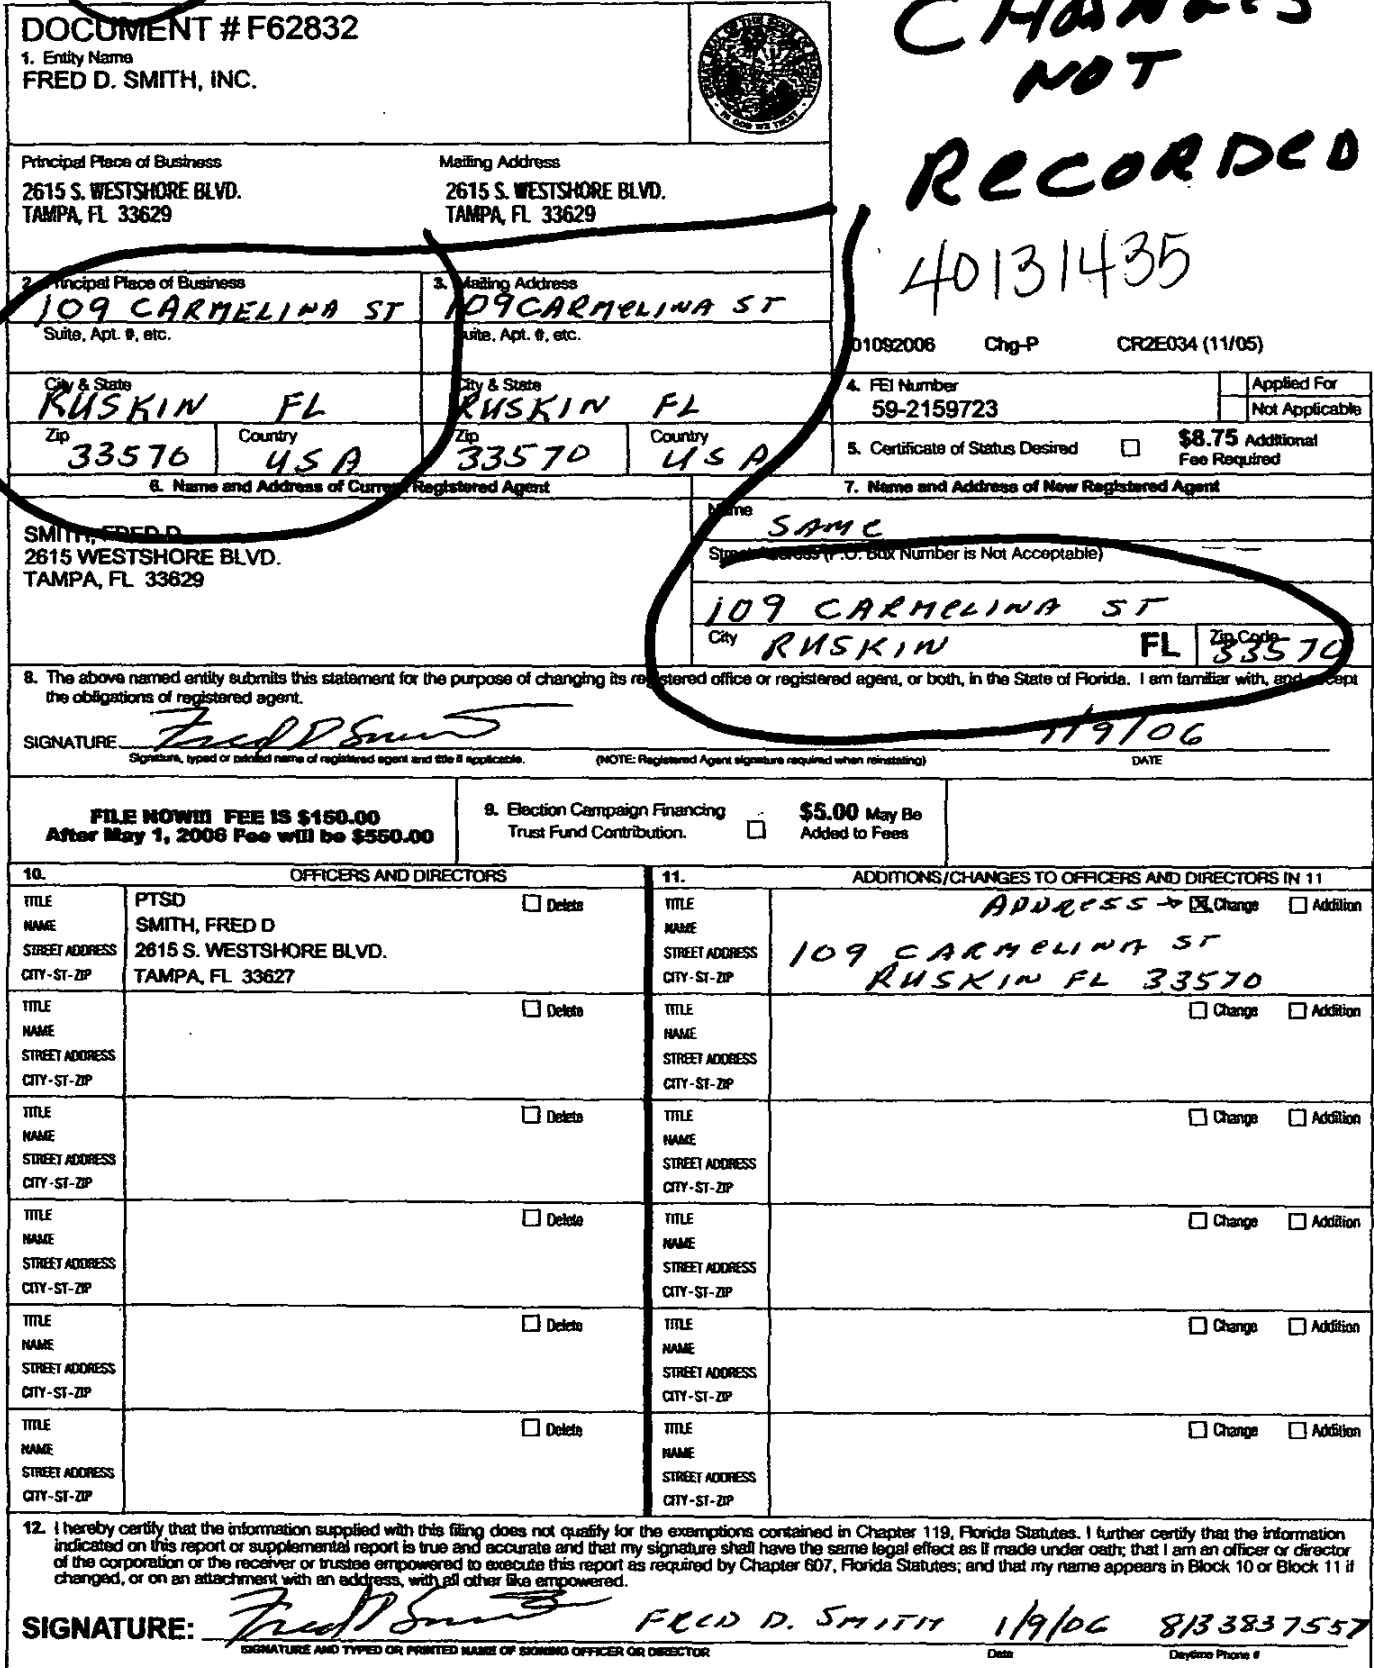 CHANGES
NOT
RECORDED
40131435
DOCUMENT # F62832
1. Entity Name
FRED D. SMITH, INC.
IN GOD WE TRUST
Principal Place of Business
2615 S. WESTSHORE BLVD.
TAMPA, FL 33629
Mailing Address
2615 S. WESTSHORE BLVD.
TAMPA, FL 33629
2. Principal Place of Business
109 CARMELINA ST
Suite, Apt. #, etc.
City & State
RUSKIN FL
Zip
33570
Country
USA
3. Mailing Address
109 CARMELINA ST
Suite, Apt. #, etc.
City & State
RUSKIN FL
Zip
33570
Country
USA
01092006 Chg-P CR2E034 (11/05)
4. FEI Number
59-2159723
Applied For
Not Applicable
5. Certificate of Status Desired
$8.75 Additional
Fee Required
6. Name and Address of Current Registered Agent
SMITH, FRED D
2615 WESTSHORE BLVD.
TAMPA, FL 33629
7. Name and Address of New Registered Agent
Name
SAME
Street Address (P.O. Box Number is Not Acceptable)
109 CARMELINA ST
City RUSKIN FL Zip Code 33570
8. The above named entity submits this statement for the purpose of changing its registered office or registered agent, or both, in the State of Florida. I am familiar with, and accept
the obligations of registered agent.
SIGNATURE Fred D Smith 1/9/06
Signature, typed or printed name of registered agent and title if applicable. (NOTE: Registered Agent signature required when reinstating) DATE
FILE NOW!!! FEE IS $150.00
After May 1, 2006 Fee will be $550.00
9. Election Campaign Financing
Trust Fund Contribution.
$5.00 May Be
Added to Fees
10. OFFICERS AND DIRECTORS
TITLE PTSD Delete
NAME SMITH, FRED D
STREET ADDRESS 2615 S. WESTSHORE BLVD.
CITY-ST-ZIP TAMPA, FL 33627
TITLE Delete
NAME
STREET ADDRESS
CITY-ST-ZIP
TITLE Delete
NAME
STREET ADDRESS
CITY-ST-ZIP
TITLE Delete
NAME
STREET ADDRESS
CITY-ST-ZIP
TITLE Delete
NAME
STREET ADDRESS
CITY-ST-ZIP
TITLE Delete
NAME
STREET ADDRESS
CITY-ST-ZIP
11. ADDITIONS/CHANGES TO OFFICERS AND DIRECTORS IN 11
TITLE ADDRESS → Change Addition
NAME
STREET ADDRESS 109 CARMELINA ST
CITY-ST-ZIP RUSKIN FL 33570
TITLE Change Addition
NAME
STREET ADDRESS
CITY-ST-ZIP
TITLE Change Addition
NAME
STREET ADDRESS
CITY-ST-ZIP
TITLE Change Addition
NAME
STREET ADDRESS
CITY-ST-ZIP
TITLE Change Addition
NAME
STREET ADDRESS
CITY-ST-ZIP
TITLE Change Addition
NAME
STREET ADDRESS
CITY-ST-ZIP
12. I hereby certify that the information supplied with this filing does not qualify for the exemptions contained in Chapter 119, Florida Statutes. I further certify that the information
indicated on this report or supplemental report is true and accurate and that my signature shall have the same legal effect as if made under oath; that I am an officer or director
of the corporation or the receiver or trustee empowered to execute this report as required by Chapter 607, Florida Statutes; and that my name appears in Block 10 or Block 11 if
changed, or on an attachment with an address, with all other like empowered.
SIGNATURE: Fred D Smith FRED D. SMITH 1/9/06 8133837557
SIGNATURE AND TYPED OR PRINTED NAME OF SIGNING OFFICER OR DIRECTOR Date Daytime Phone #